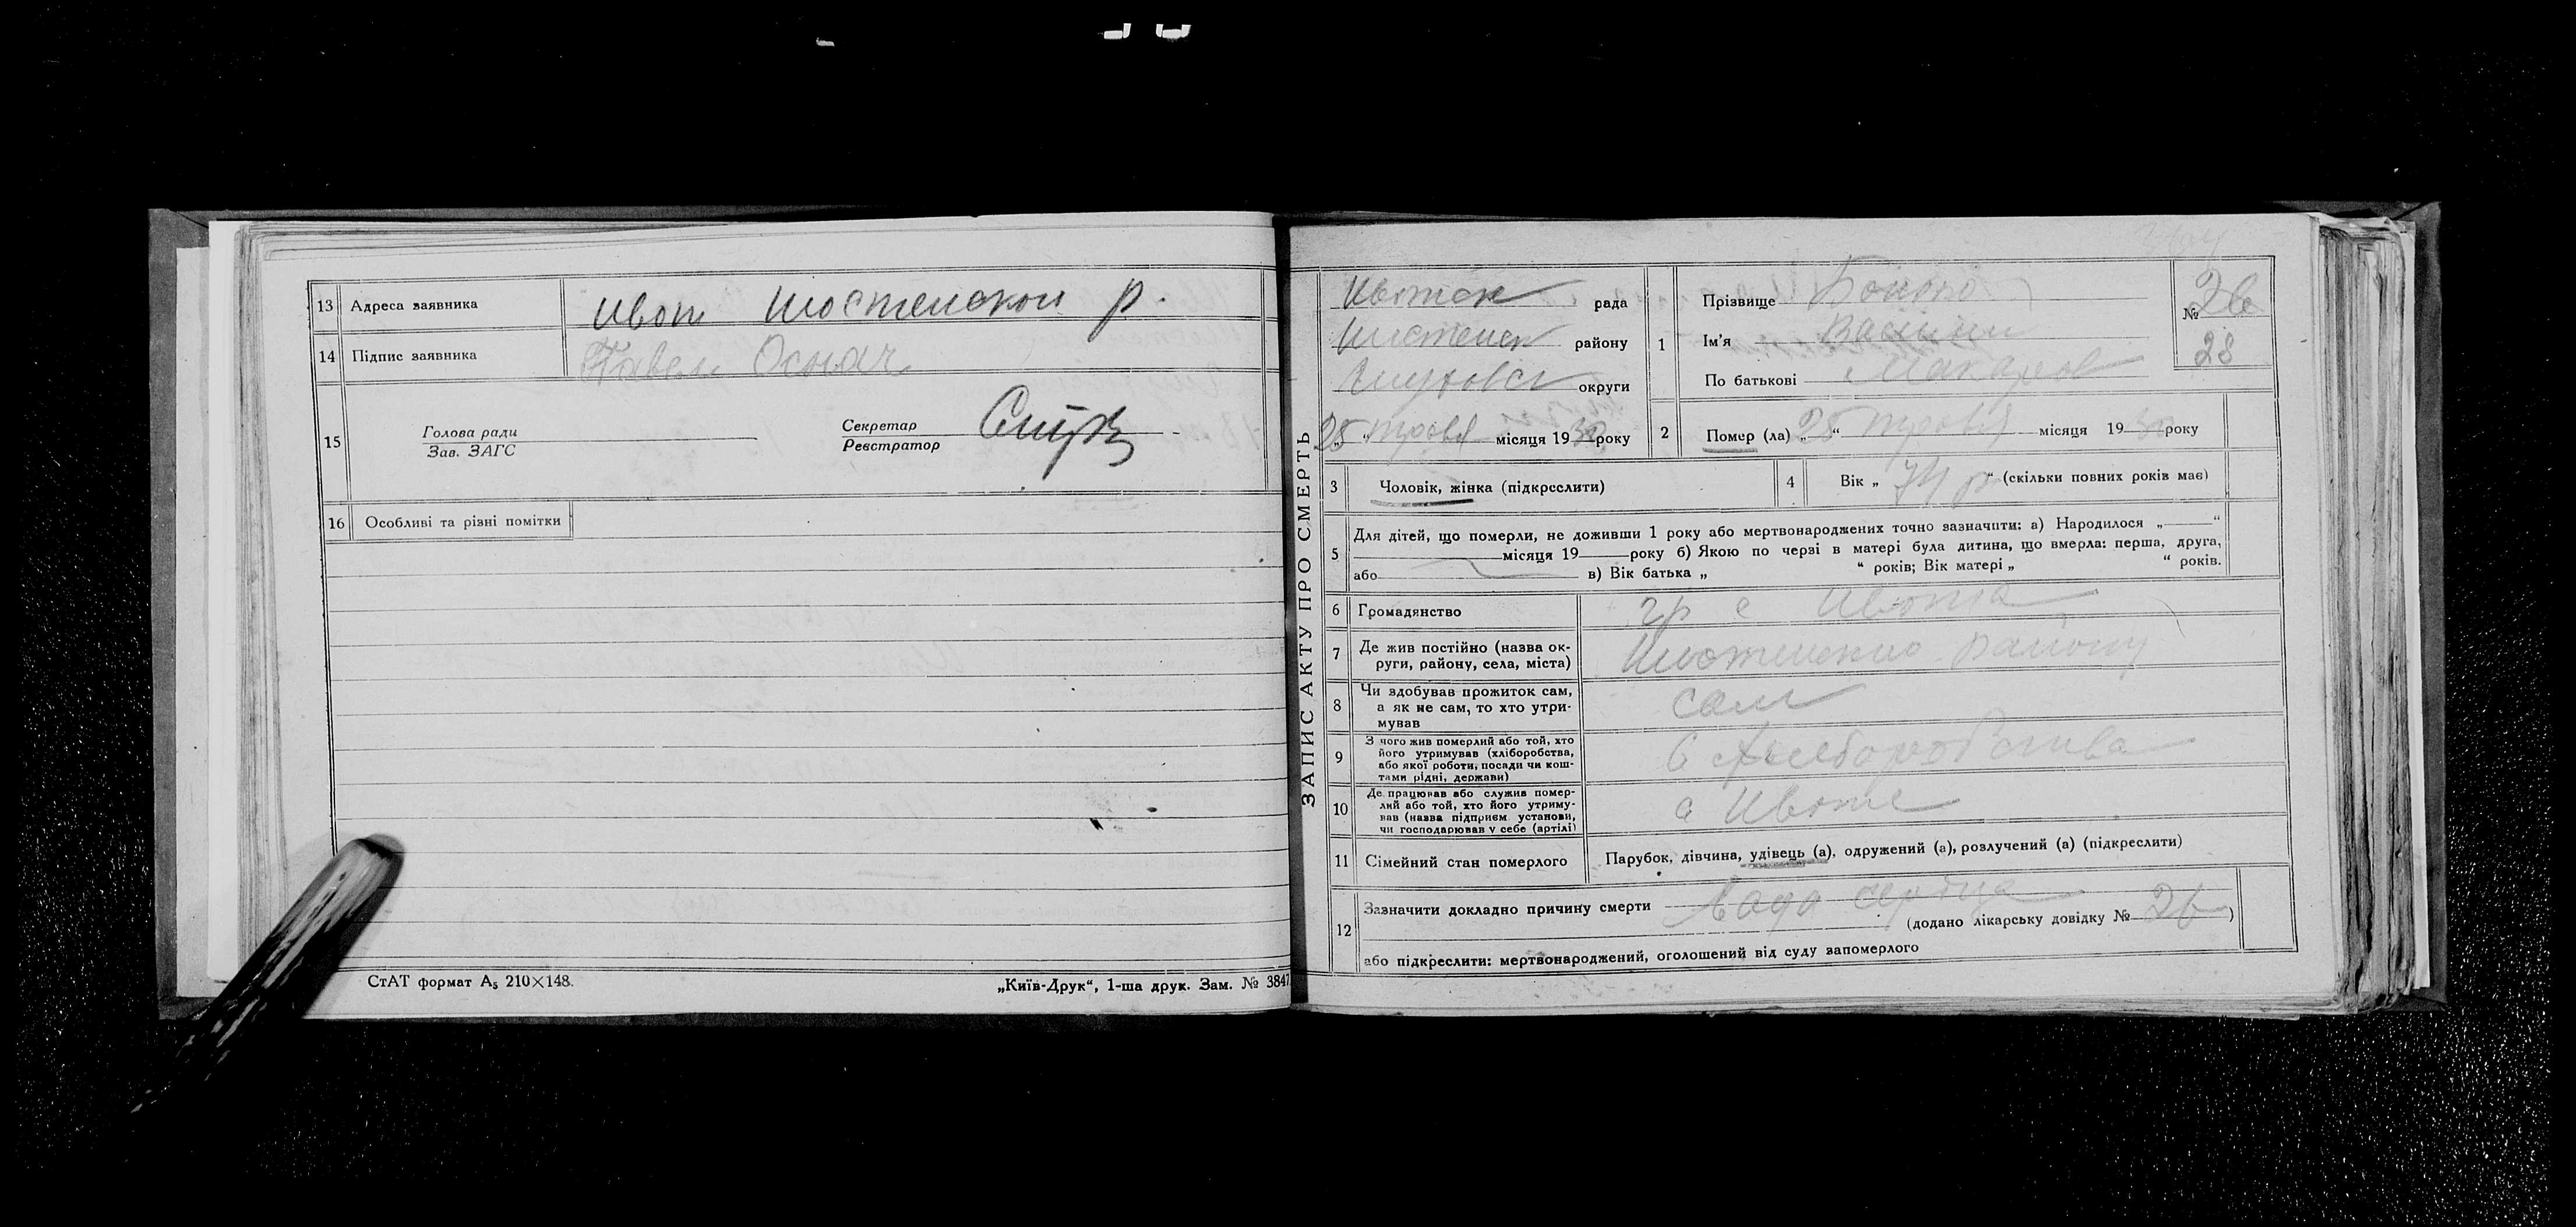 13 Адреса заявника Ивот Шостенской р.
14 Підпис заявника Павел Оснач
15 Голова ради
Зав. ЗАГС
Секретар
Реєстратор
16 Особливі та різні помітки
СтАТ формат А₅ 210×148.
„Київ-Друк“, 1-ша друк. Зам. № 3847
ЗАПИС АКТУ ПРО СМЕРТЬ
Ивотск рада
Шостенск району
Глуховск округи
„25“ травня місяця 1930 року
1 Прізвище
Ім'я
По батькові Макаров
№ 26
28
2 Помер (ла) „25“ травня місяця 1930 року
3 Чоловік, жінка (підкреслити)
4 Вік „74 р“ (скільки повних років має)
5 Для дітей, що померли, не доживши 1 року або мертвонароджених точно зазначити: а) Народилося „ “
місяця 19 року б) Якою по черзі в матері була дитина, що вмерла: перша, друга,
або в) Вік батька „ “ років; Вік матері „ “ років.
6 Громадянство гр с Ивота
7 Де жив постійно (назва ок-
руги, району, села, міста) Шостенского району
8 Чи здобував прожиток сам,
а як не сам, то хто утри-
мував сам
9 З чого жив померлий або той, хто
його утримував (хліборобства,
або якої роботи, посади чи кош-
тами рідні, держави) С хлеборобства
10 Де працював або служив помер-
лий або той, хто його утриму-
вав (назва підприєм. установи,
чи господарював у себе (артілі) с Ивоте
11 Сімейний стан померлого Парубок, дівчина, удівець (а), одружений (а), розлучений (а) (підкреслити)
12 Зазначити докладно причину смерти сердца
(додано лікарську довідку № 26)
або підкреслити: мертвонароджений, оголошений від суду запомерлого